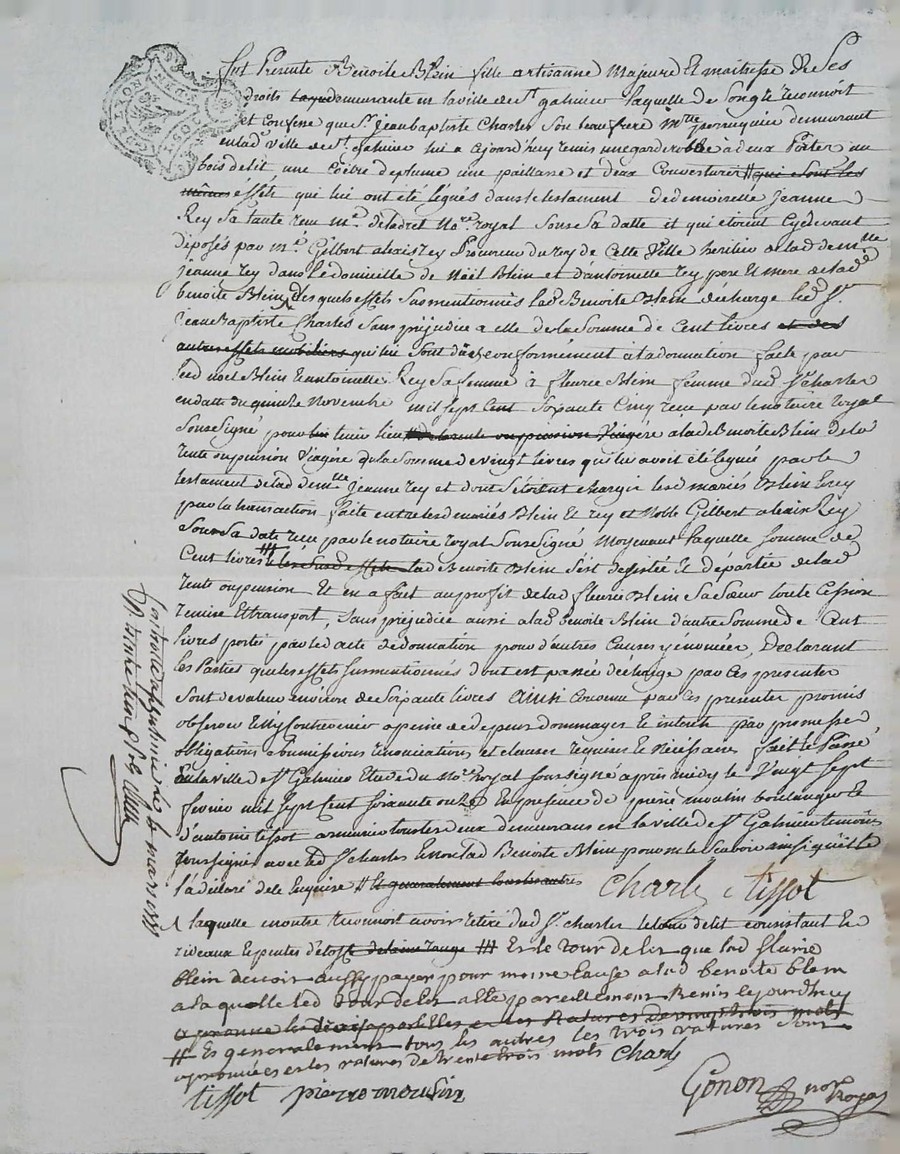 Fut Presente Benoite Blein fille artisanne Majeure Et maitresse de Ses
droits demeurante en la ville de St. galmier laquelle de Son gré reconnoit
et confesse que Sr. Jean baptiste Charles Son beau frere Mtre perruquier demeurant
en lad. ville de St. galmier lui a ejourd'huy remis une garderobbe à deux Portes un
bois de lit une Coitre de plume une paillasse et deux Couvertures # qui Sont les
mêmes effets qui lui ont été légués dans le testament de demoiselle Jeanne
Rey Sa tante reçu Me. deladret Nore. royal Sous Sa datte et qui etoient Cydevant
déposés par Me. Gilbert aleais Rey Procureur du roy de Cette Ville heritier de lad. demlle
jeanne rey dans le domicille de Noël Blein et d'antoinette rey pere Et mere de lad.
benoite Blein, des quels effets Susmentionnés lad. Benoite Blein décharge led. Sr.
Jean Baptiste Charles Sans préjudice a elle de la Somme de Cent livres et des
autres effets mobiliers qui lui Sont dus conformément à la donnation faite par
led. noël Blein Et antoinette Rey Sa femme à fleurie Blein femme dud. Sr. Charles
en datte du quinze Novembre mil Sept Cent Soixante Cinq reçue par le notaire royal
Soussigné pour lui tenir lieu de la rente ou pension Viagére a lad. Benoite Blein de la
rente ou pension Viagére de la Somme de vingt livres qui lui avoit été léguée par le
testament de lad. demlle Jeanne rey et dont S'étoient chargés les d. mariés Blein Et rey
par la transaction faite entre les d. mariés Blein Et rey et Noble Gilbert aleais Rey
Sous Sa date reçue par le notaire royal Soussigné Moyenant laquelle Somme de
Cent livres ### et les Susd. effets lad. Benoite Blein S'est desistée et départie de lad.
rente ou pension Et en a fait au profit de lad. fleurie Blein Sa Sœur toute Cession
remise Et transport, Sans préjudice aussi a lad. benoite Blein d'autre Somme de Cent
livres portée par led. acte de donnation pour d'autres Causes y énoncées, Déclarant
les Parties que les effets Surmentionnés dont est passée décharge par Ces presentes
Sont de valeur environ de Soixante livres AINSI Convenu par Ces presentes promis
observer Et N'y Contrevenir a peine de depens dommages Et interets par promesses
obligations Soumissions renonciations et clauses requises Et Nécessaires fait Et Passé
en la ville de St. Galmier Etude du Nore. Royal Soussigné après midy le Vingt Sept
fevrier mil Sept Cent Soixante onze En presence de pierre moulin boulanger Et
d'antoine tissot armurier tous les deux demeurans en la ville de St. Galmier temoins
Soussignés avec led. Sr. charles Et non lad. Benoite Blein pour ne le Scavoir ainsi qu'elle
l'a déclaré de ce Enquise # Et generalement tous les autres Charle tissot
laquelle en outre reconnoit avoir retiré dud. Sr. charles le tour de lit consistant En
rideaux Et pentes d'étoffe de laine rouge ### Et le tour de lit que lad. flurie
blein devoit aussy payer pour meme Cause a lad. benoite blein
a la quelle led. tour de lit a été pareillement Remis ejourd'huy
# Et generalement tous les autres les trois ratures Sont
aprouvées et les ratures de trente trois mots Charle
tissot pierre moulin
Gonon nore Royal